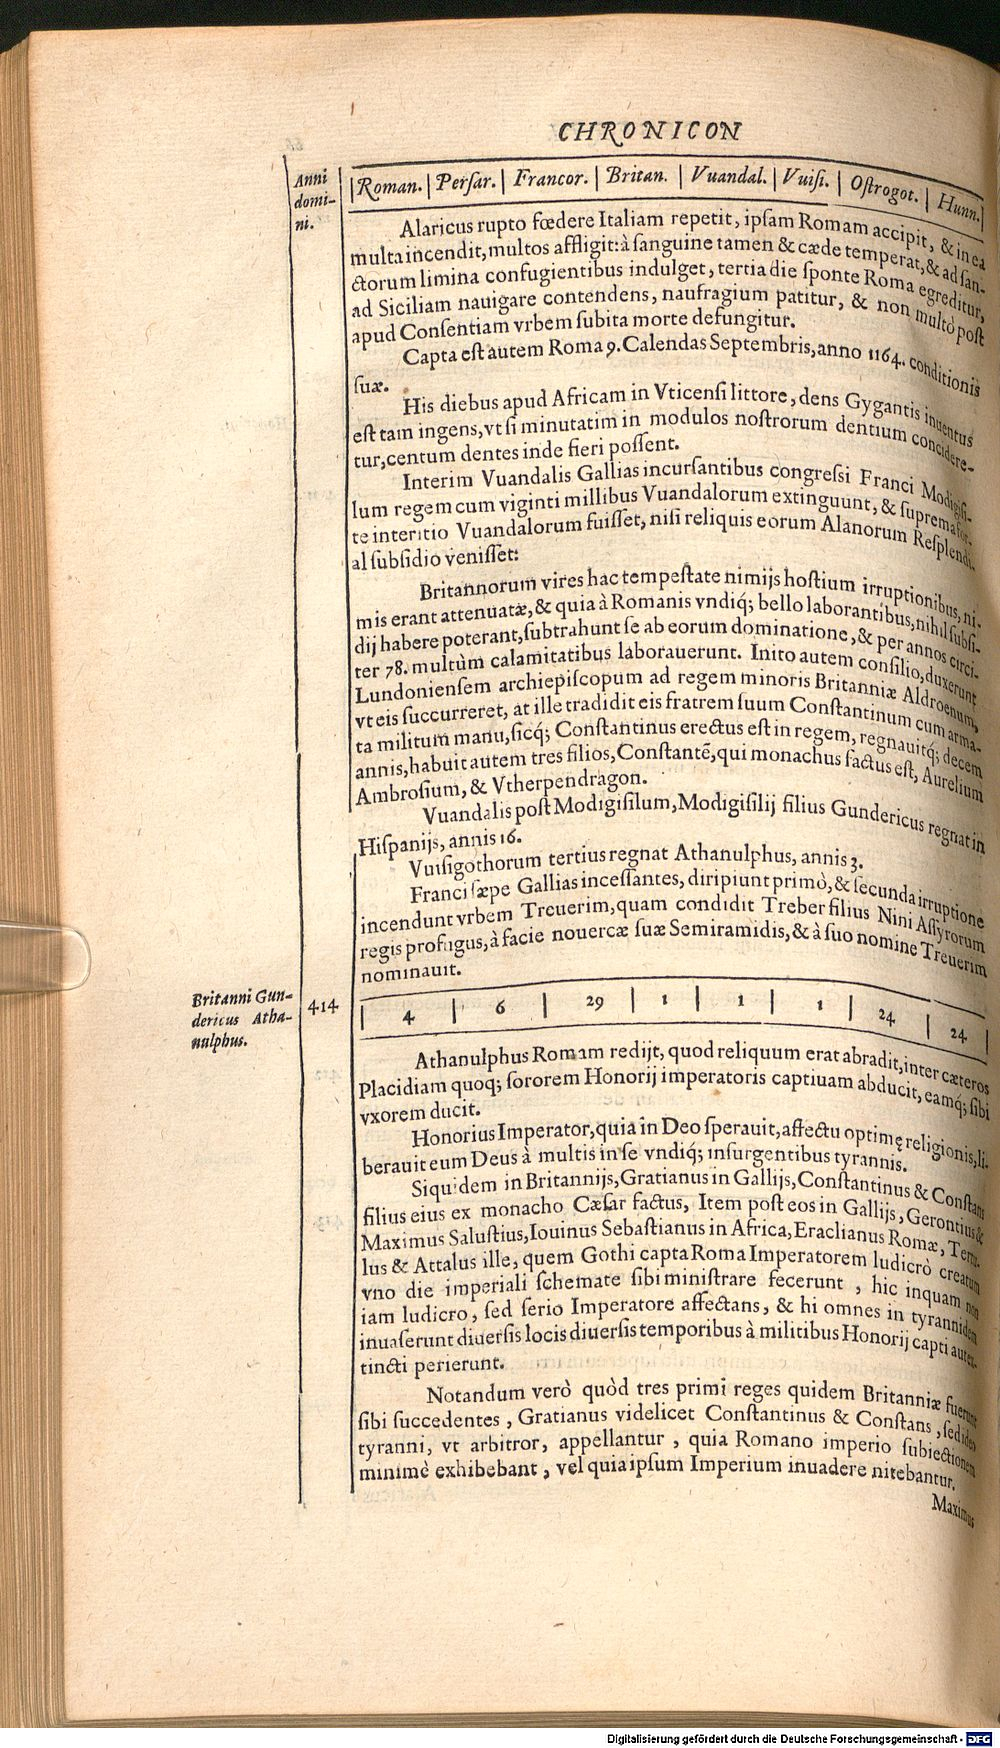 CHRONICON
Anni
domi-
ni.
|Roman.| Persar.| Francor.| Britan. | Vuandal.| Vuisi. | Ostrogot. | Hunn.|
Alaricus rupto fœdere Italiam repetit, ipsam Romam accipit, & in ea
multa incendit, multos affligit: à sanguine tamen & cæde temperat, & ad san-
ctorum limina confugientibus indulget, tertia die sponte Roma egreditur,
ad Siciliam nauigare contendens, naufragium patitur, & non multò post
apud Consentiam vrbem subita morte defungitur.
Capta est autem Roma 9. Calendas Septembris, anno 1164. conditionis
suæ.
His diebus apud Africam in Vticensi littore, dens Gygantis inuentus
est tam ingens, vt si minutatim in modulos nostrorum dentium concidere-
tur, centum dentes inde fieri possent.
Interim Vuandalis Gallias incursantibus congressi Franci Modigisi-
lum regem cum viginti millibus Vuandalorum extinguunt, & suprema for-
te interitio Vuandalorum fuisset, nisi reliquis eorum Alanorum Resplendi-
al subsidio venisset:
Britannorum vires hac tempestate nimijs hostium irruptionibus, ni-
mis erant attenuatæ, & quia à Romanis vndiq; bello laborantibus, nihil subsi-
dij habere poterant, subtrahunt se ab eorum dominatione, & per annos circi-
ter 78. multùm calamitatibus laborauerunt. Inito autem consilio, duxerunt
Lundoniensem archiepiscopum ad regem minoris Britanniæ Aldroenum,
vt eis succurreret, at ille tradidit eis fratrem suum Constantinum cum arma-
ta militum manu, sicq; Constantinus erectus est in regem, regnauitq; decem
annis, habuit autem tres filios, Constantē, qui monachus factus est, Aurelium
Ambrosium, & Vtherpendragon.
Vuandalis post Modigisilum, Modigisilij filius Gundericus regnat in
Hispanijs, annis 16.
Vuisigothorum tertius regnat Athanulphus, annis 3.
Franci sæpe Gallias incessantes, diripiunt primò, & secunda irruptione
incendunt vrbem Treuerim, quam condidit Treber filius Nini Assyrorum
regis profugus, à facie nouercæ suæ Semiramidis, & à suo nomine Treuerim
nominauit.
Britanni Gun-
dericus Atha-
nulphus.
414 | 4 | 6 | 29 | 1 | 1 | 1 | 24 | 24 |
Athanulphus Romam redijt, quod reliquum erat abradit, inter cæteros
Placidiam quoq; sororem Honorij imperatoris captiuam abducit, eamq; sibi
vxorem ducit.
Honorius Imperator, quia in Deo sperauit, affectu optimę religionis, li-
berauit eum Deus à multis in se vndiq; insurgentibus tyrannis.
Siquidem in Britannijs, Gratianus in Gallijs, Constantinus & Constans
filius eius ex monacho Cæsar factus, Item post eos in Gallijs, Gerontius &
Maximus Salustius, Iouinus Sebastianus in Africa, Eraclianus Romæ, Tertu-
lus & Attalus ille, quem Gothi capta Roma Imperatorem ludicrò creatum
vno die imperiali schemate sibi ministrare fecerunt, hic inquam non
iam ludicro, sed serio Imperatore affectans, & hi omnes in tyrannidem
inuaserunt diuersis locis diuersis temporibus à militibus Honorij capti autex-
tincti perierunt.
Notandum verò quòd tres primi reges quidem Britanniæ fuerunt
sibi succedentes, Gratianus videlicet Constantinus & Constans, sed ideo
tyranni, vt arbitror, appellantur, quia Romano imperio subiectionem
minimè exhibebant, vel quia ipsum Imperium inuadere nitebantur.
Maximus
Digitalisierung gefördert durch die Deutsche Forschungsgemeinschaft - DFG